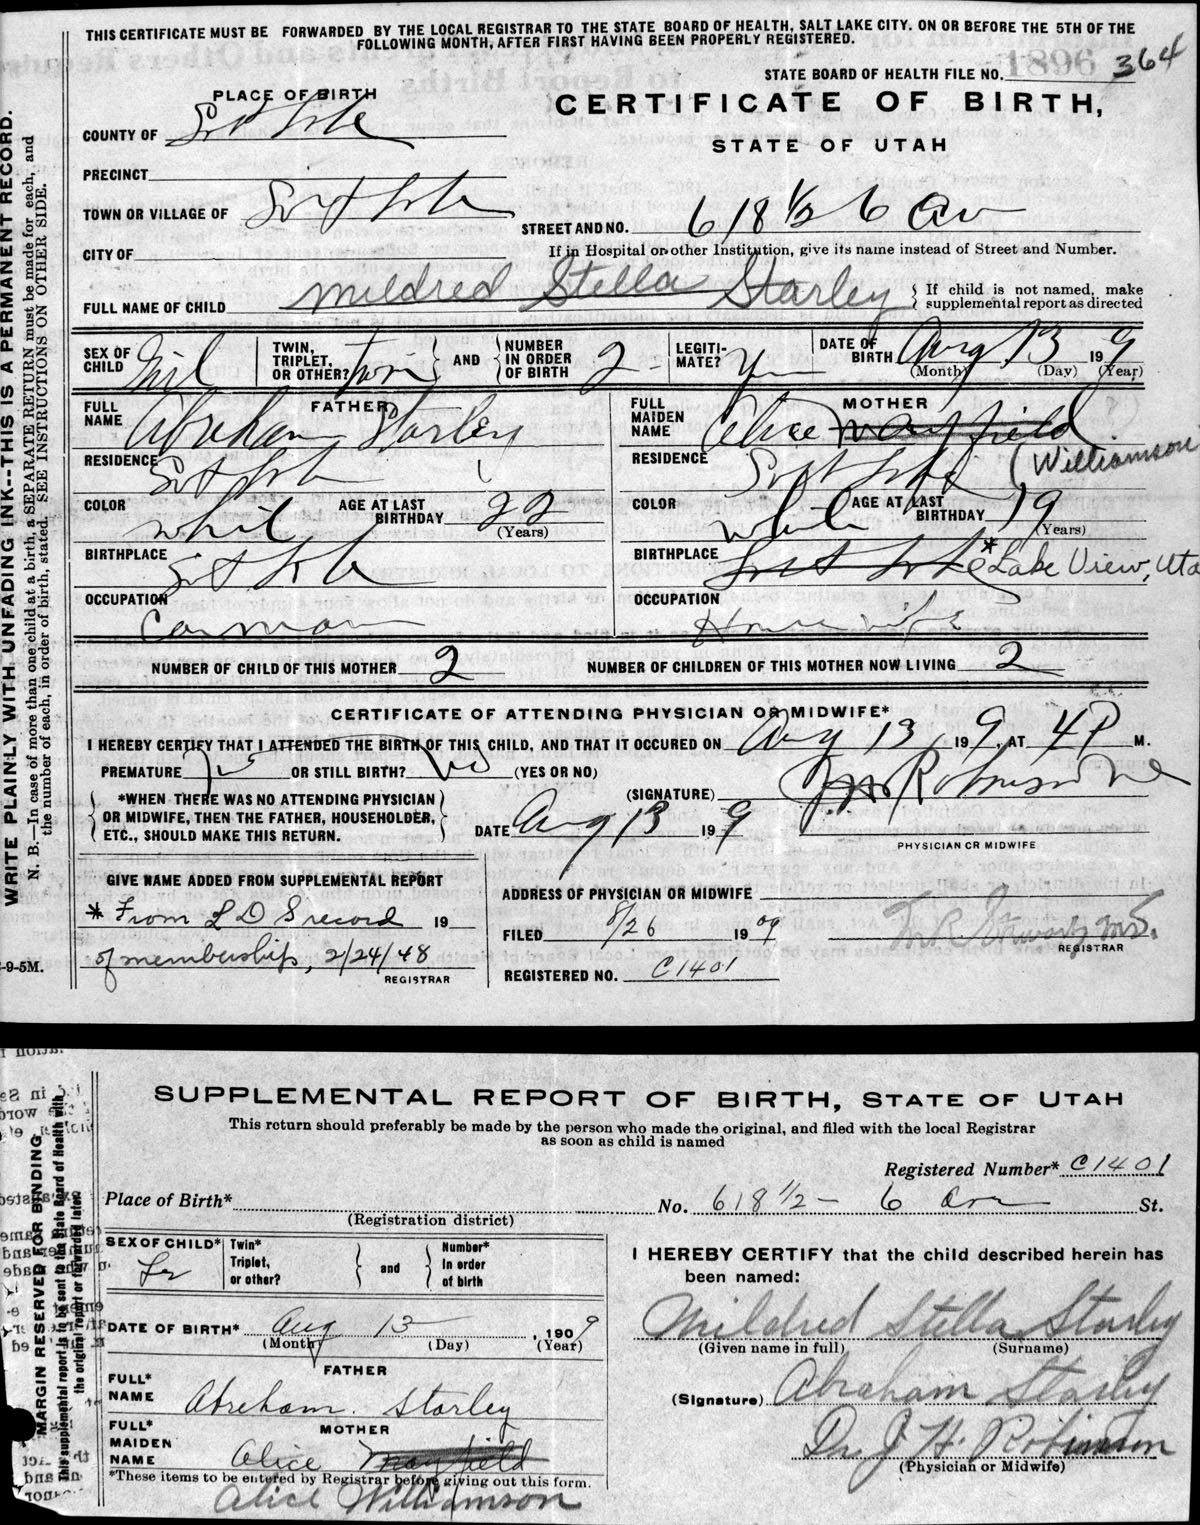 THIS CERTIFICATE MUST BE FORWARDED BY THE LOCAL REGISTRAR TO THE STATE BOARD OF HEALTH, SALT LAKE CITY. ON OR BEFORE THE 5TH OF THE
FOLLOWING MONTH, AFTER FIRST HAVING BEEN PROPERLY REGISTERED.
STATE BOARD OF HEALTH FILE NO. 1896 364
PLACE OF BIRTH
CERTIFICATE OF BIRTH,
STATE OF UTAH
COUNTY OF Salt Lake
PRECINCT
TOWN OR VILLAGE OF Salt Lake
STREET AND NO. 618 1/2 6 Av
CITY OF
If in Hospital or other Institution, give its name instead of Street and Number.
FULL NAME OF CHILD Mildred Stella Starley
If child is not named, make
supplemental report as directed
SEX OF CHILD
TWIN, TRIPLET, OR OTHER? Twin AND NUMBER IN ORDER OF BIRTH 2
LEGITIMATE? Y
DATE OF BIRTH Aug 13 19 9
(Month) (Day) (Year)
FATHER
FULL NAME Abraham Starley
RESIDENCE Salt Lake
COLOR White AGE AT LAST BIRTHDAY 22
(Years)
BIRTHPLACE Salt Lake
OCCUPATION Carman
MOTHER
FULL MAIDEN NAME Alice Mayfield
(Williamson
RESIDENCE Salt Lake
COLOR White AGE AT LAST BIRTHDAY 19
(Years)
BIRTHPLACE Salt Lake * Lake View, Uta
OCCUPATION Housewife
NUMBER OF CHILD OF THIS MOTHER 2 NUMBER OF CHILDREN OF THIS MOTHER NOW LIVING 2
CERTIFICATE OF ATTENDING PHYSICIAN OR MIDWIFE*
I HEREBY CERTIFY THAT I ATTENDED THE BIRTH OF THIS CHILD, AND THAT IT OCCURED ON Aug 13 19 9, AT 4 P M.
PREMATURE OR STILL BIRTH? No (YES OR NO)
*WHEN THERE WAS NO ATTENDING PHYSICIAN
OR MIDWIFE, THEN THE FATHER, HOUSEHOLDER,
ETC., SHOULD MAKE THIS RETURN.
(SIGNATURE)
DATE Aug 13 19 9
PHYSICIAN OR MIDWIFE
GIVE NAME ADDED FROM SUPPLEMENTAL REPORT
* From L D S record 19
of membership, 2/24/48
REGISTRAR
ADDRESS OF PHYSICIAN OR MIDWIFE
FILED 8/26 19 09
REGISTRAR
REGISTERED NO. C1401
-9-5M.
WRITE PLAINLY WITH UNFADING INK--THIS IS A PERMANENT RECORD.
N. B.—In case of more than one child at a birth, a SEPARATE RETURN must be made for each, and
the number of each, in order of birth, stated. SEE INSTRUCTIONS ON OTHER SIDE.
SUPPLEMENTAL REPORT OF BIRTH, STATE OF UTAH
This return should preferably be made by the person who made the original, and filed with the local Registrar
as soon as child is named
Registered Number* C1401
Place of Birth* No. 618 1/2 - 6 Ave St.
(Registration district)
SEX OF CHILD*
Twin* Triplet, or other? and Number* In order of birth
DATE OF BIRTH* Aug 13 , 190 9
(Month) (Day) (Year)
FATHER
FULL* NAME Abreham. Starley
MOTHER
FULL* MAIDEN NAME Alice Mayfield
*These items to be entered by Registrar before giving out this form.
Alice Williamson
I HEREBY CERTIFY that the child described herein has
been named:
Mildred Stella Starley
(Given name in full) (Surname)
(Signature) Abraham Starley
Dr. J. H. Robinson
(Physician or Midwife)
MARGIN RESERVED FOR BINDING
This supplemental report is to be sent to the State Board of Health with
the original report or forwarded later.